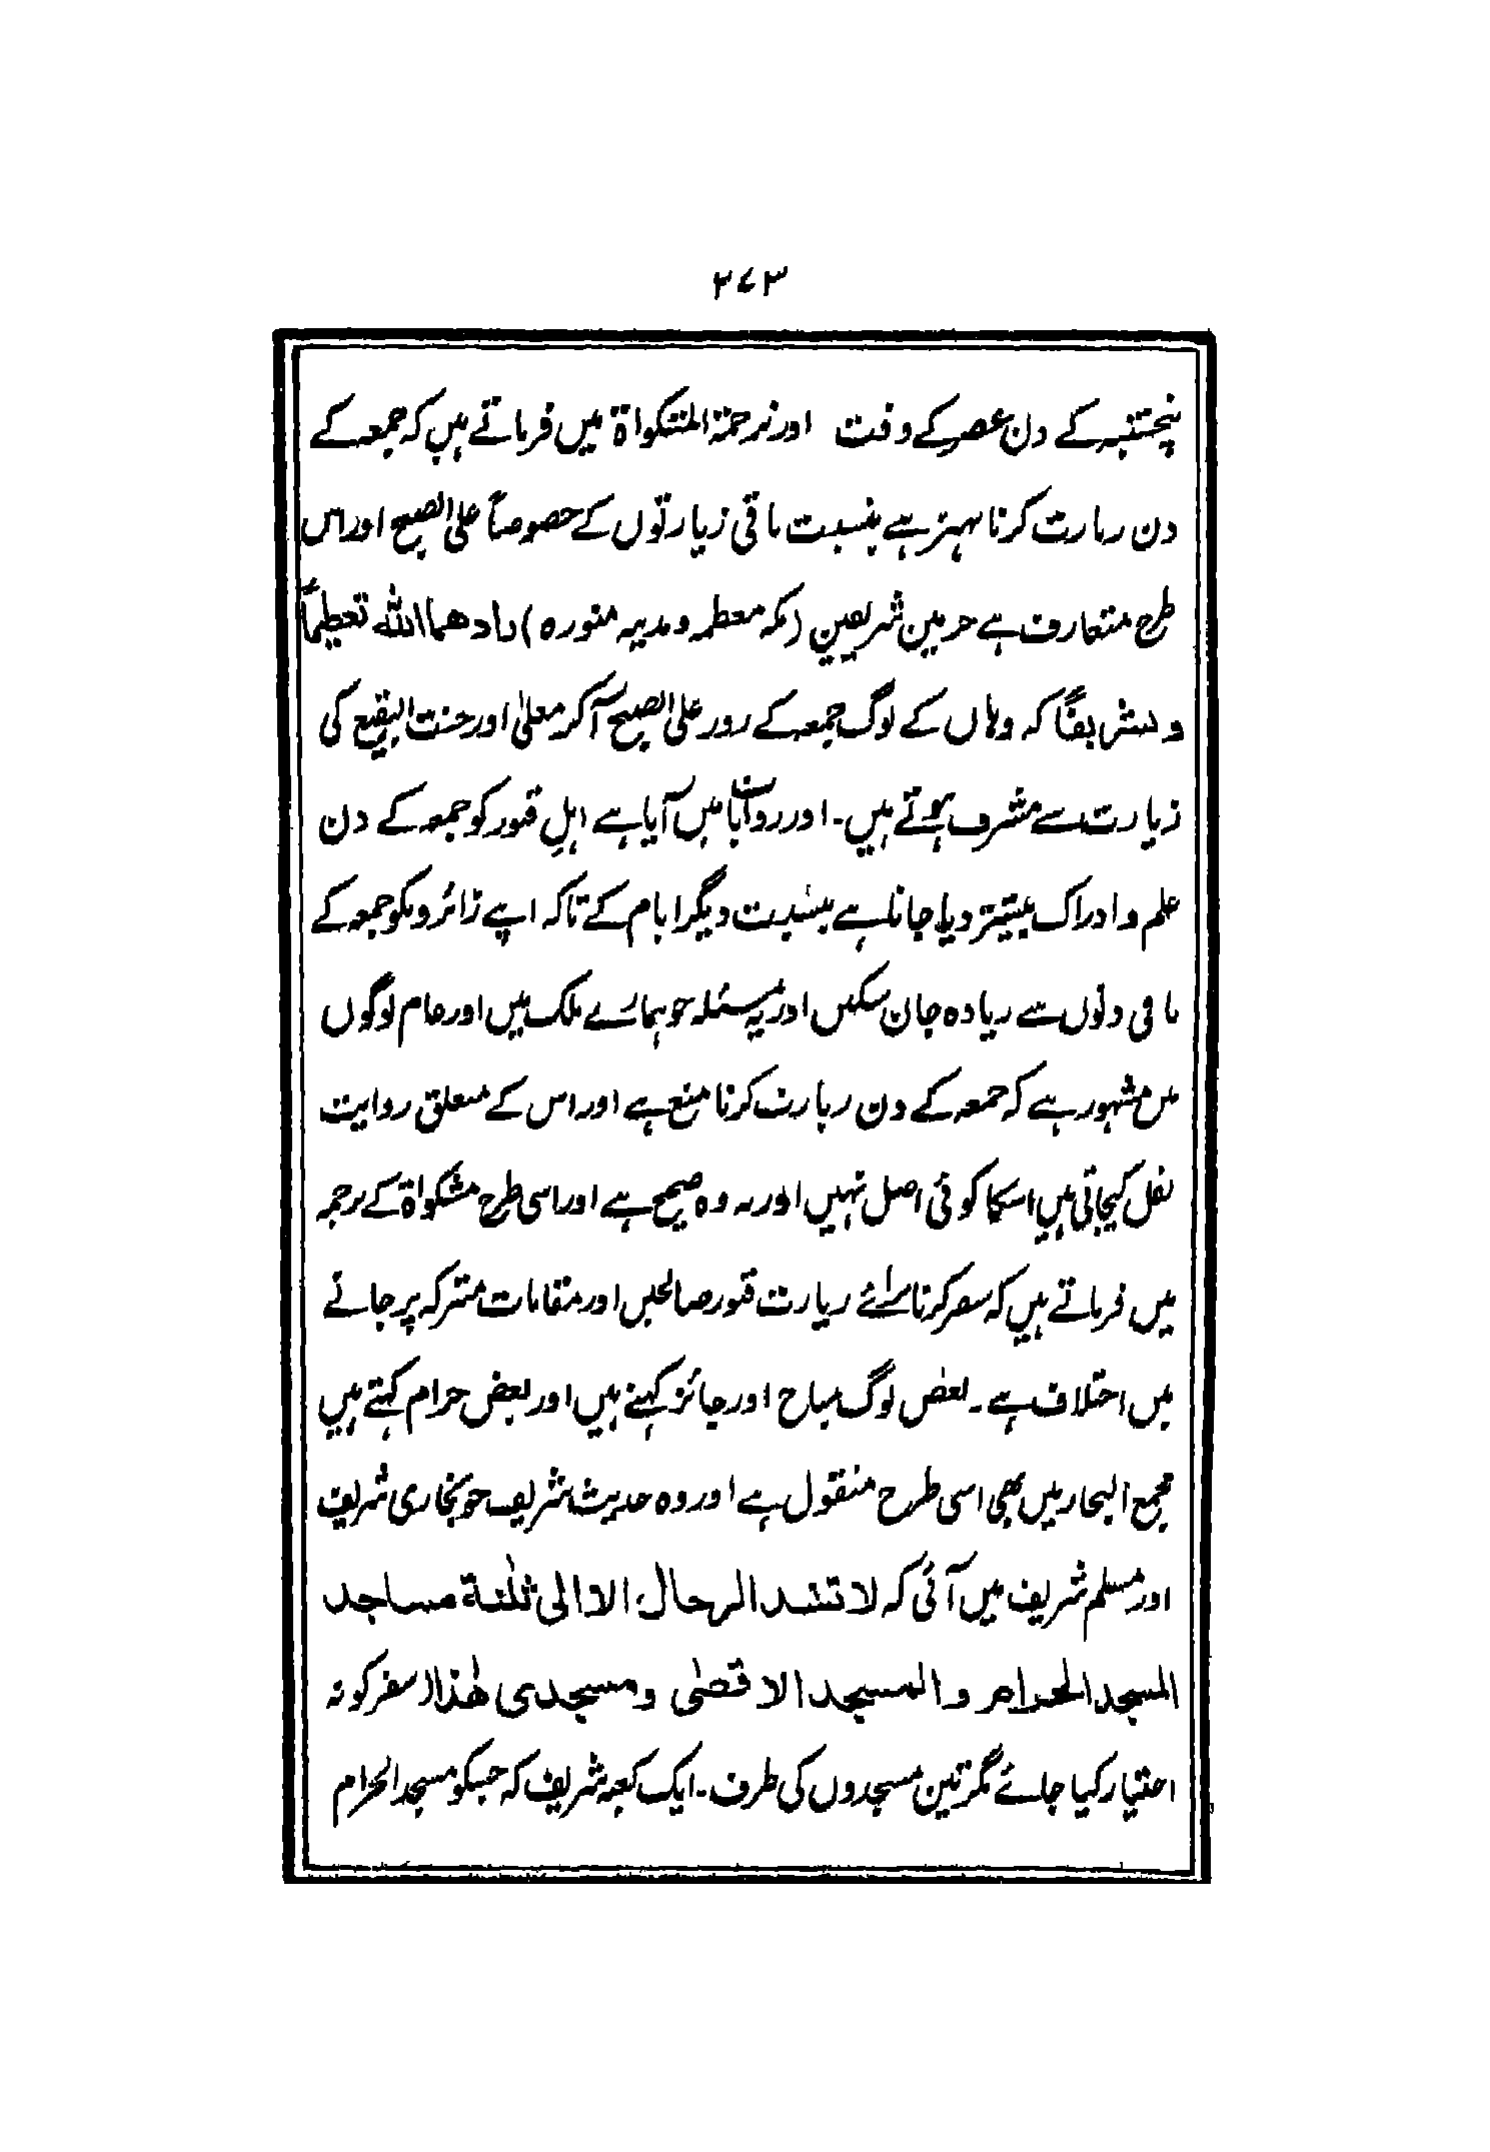 ۲۷۳
پنجشنبہ کے دن عصر کے وقت اور ترجمۃ المشکواۃ میں فرماتے ہیں کہ جمعہ کے
دن زیارت کرنا بہتر ہے بنسبت باقی زیارتوں کے خصوصاً علی الصبح اور اس
طرح متعارف ہے حرمین شریفین (مکہ معظمہ و مدینہ منورہ) زادھما اللہ تعظیماً
و تشریفاً کہ وہاں کے لوگ جمعہ کے روز علی الصبح آ کر معلیٰ اور جنت البقیع کی
زیارت سے مشرف ہوتے ہیں۔ اور روایات میں آیا ہے اہلِ قبور کو جمعہ کے دن
علم و ادراک بیشتر دیا جاتا ہے بنسبت دیگر ایام کے تاکہ اپنے زائرونکو جمعہ کے
باقی دنوں سے زیادہ جان سکیں اور یہ مسئلہ جو ہمارے ملک میں اور عام لوگوں
میں مشہور ہے کہ جمعہ کے دن زیارت کرنا منع ہے اور اس کے متعلق روایت
نقل کیجاتی ہیں اسکا کوئی اصل نہیں اور نہ وہ صحیح ہے اور اسی طرح مشکواۃ کے ترجمہ
میں فرماتے ہیں کہ سفر کرنا برائے زیارت قبور صالحین اور مقامات متبرکہ پر جانے
میں اختلاف ہے۔ بعض لوگ مباح اور جائز کہتے ہیں اور بعض حرام کہتے ہیں
مجمع البحار میں بھی اسی طرح منقول ہے اور وہ حدیث شریف جو بخاری شریف
اور مسلم شریف میں آئی کہ لا تشد الرحال الا الی ثلٰثۃ مساجد
المسجد الحرام و المسجد الاقصٰی و مسجدی ھٰذا سفر کو نہ
اختیار کیا جائے مگر تین مسجدوں کی طرف۔ ایک کعبہ شریف کہ جسکو مسجد الحرام